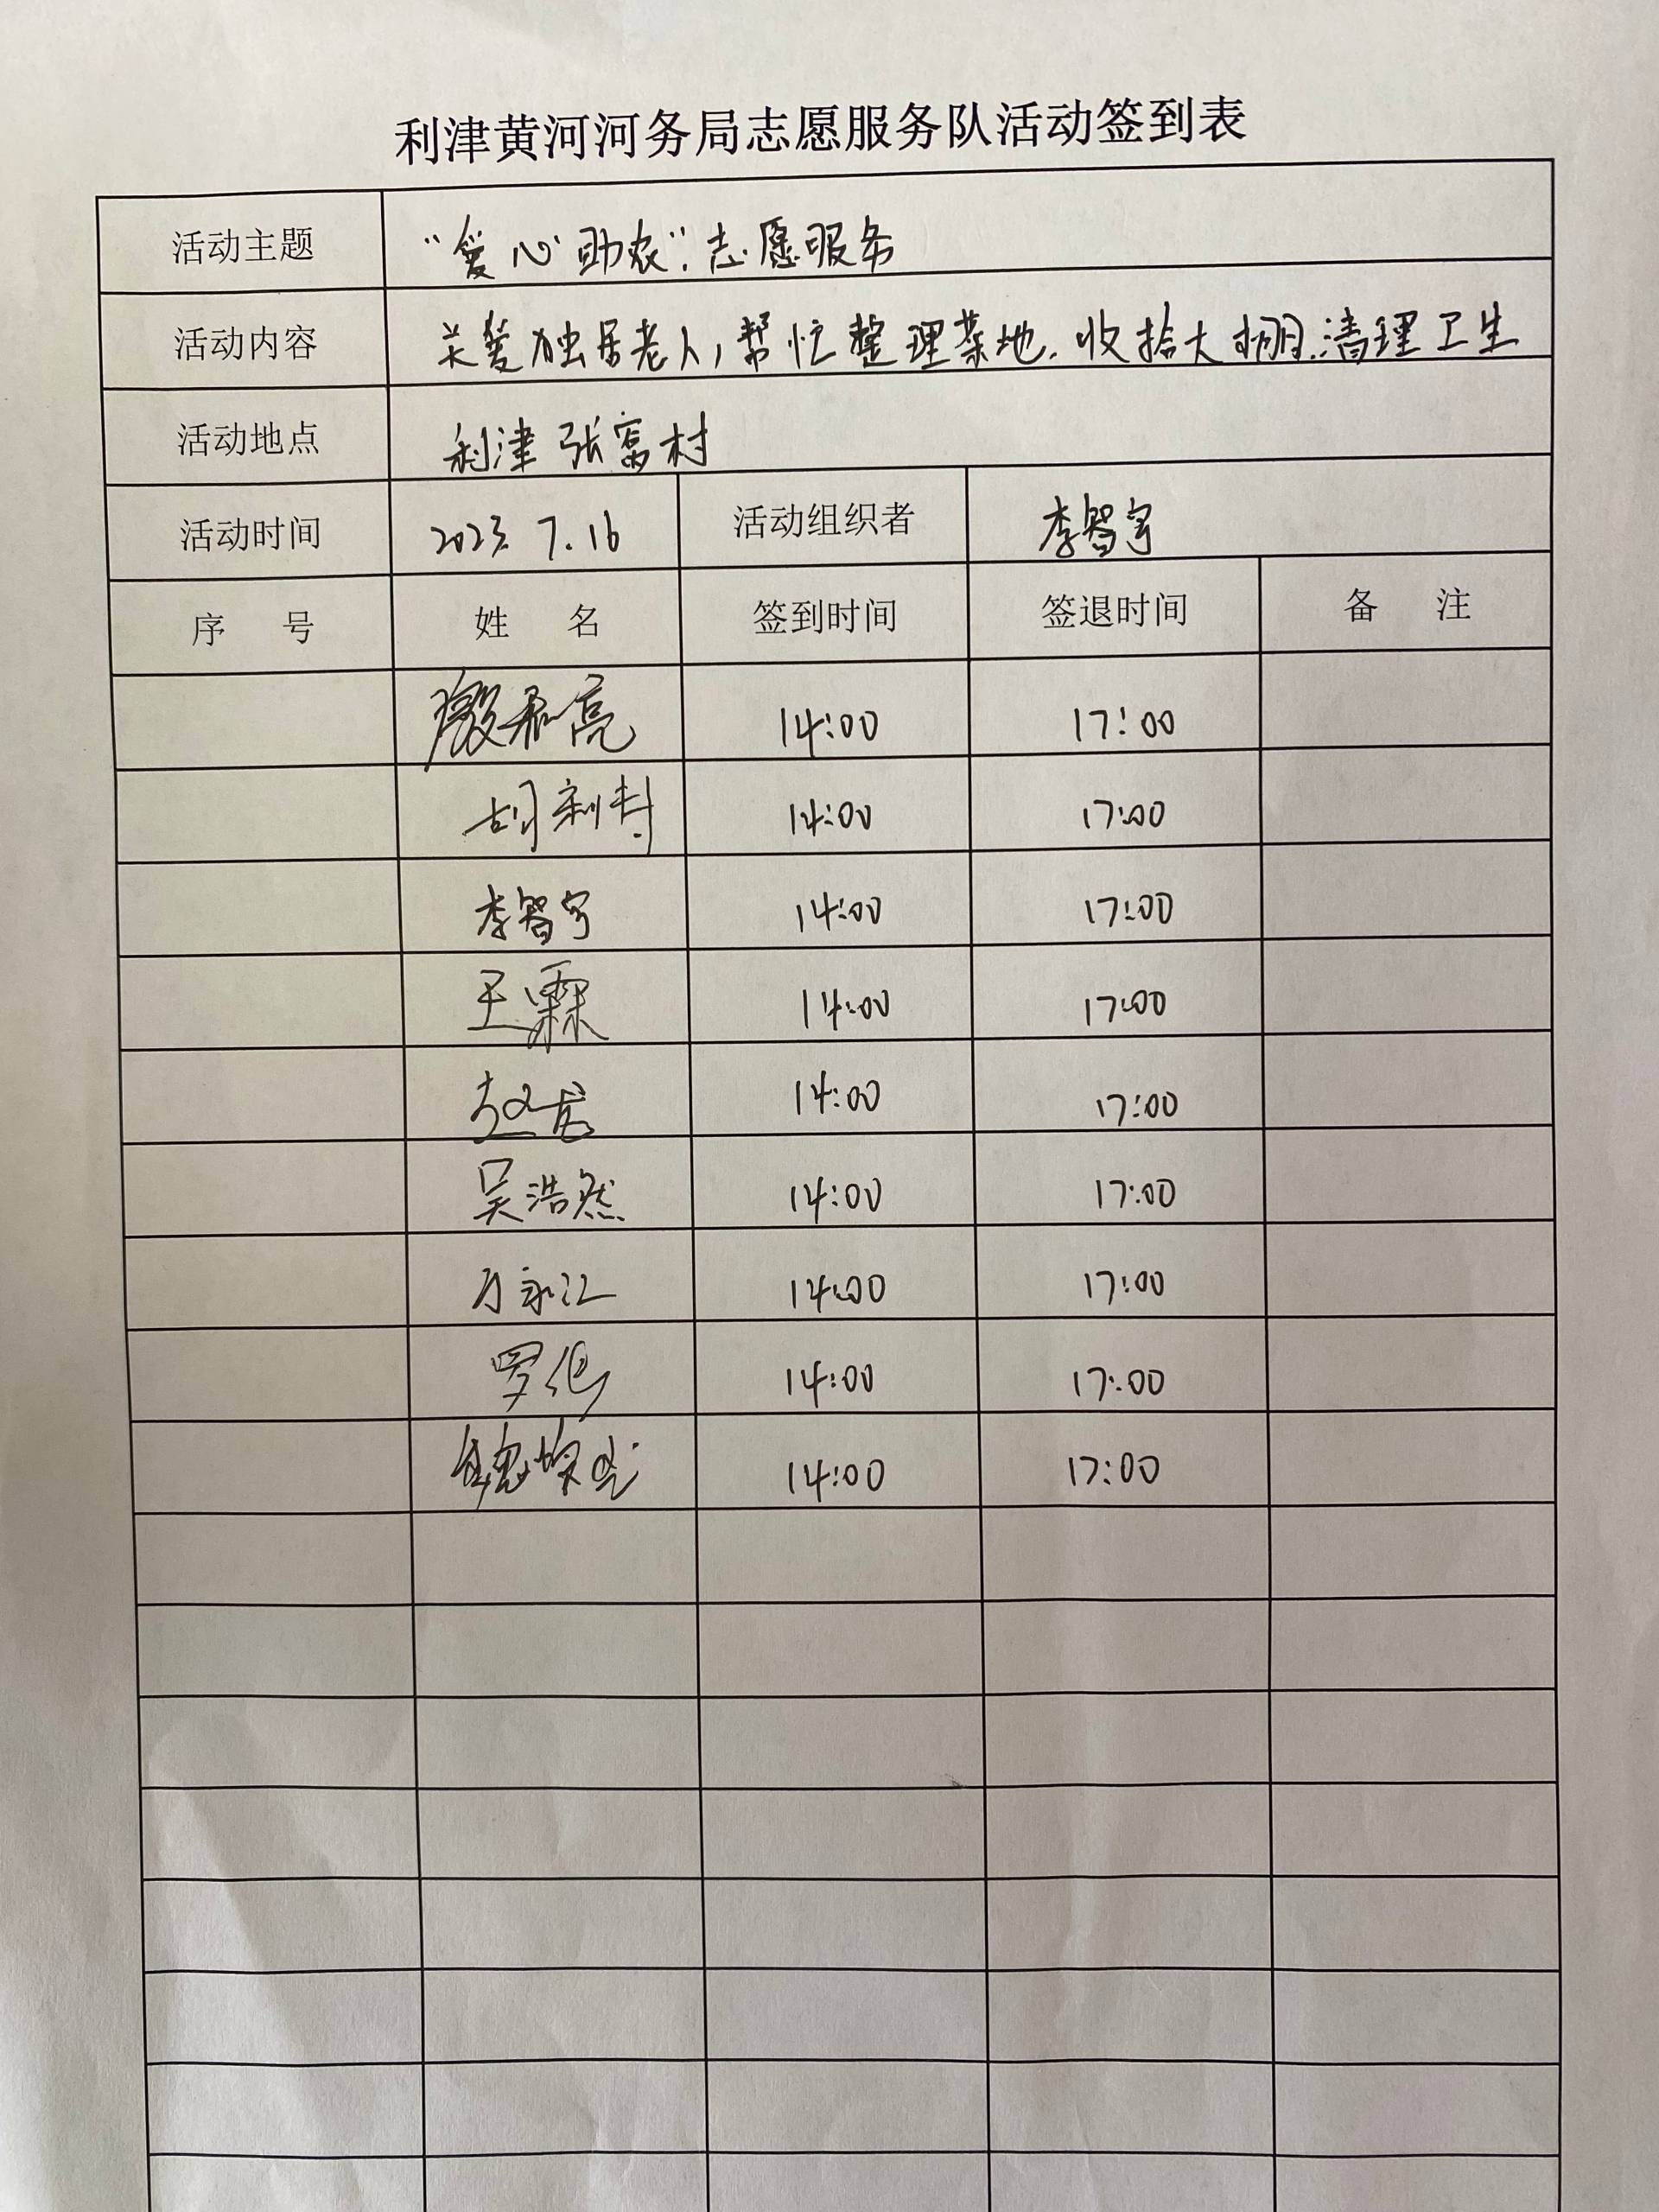 利津黄河河务局志愿服务队活动签到表
活动主题 "爱心助农"志愿服务
活动内容 关爱独居老人,帮忙整理菜地.收拾大棚.清理卫生
活动地点 利津张窝村
活动时间 2023.7.16 活动组织者 李智宇
序 号 姓 名 签到时间 签退时间 备 注
14:00 17:00
胡利 14:00 17:00
李智宇 14:00 17:00
王霖 14:00 17:00
赵龙 14:00 17:00
吴浩然 14:00 17:00
万永江 14:00 17:00
罗伟 14:00 17:00
14:00 17:00